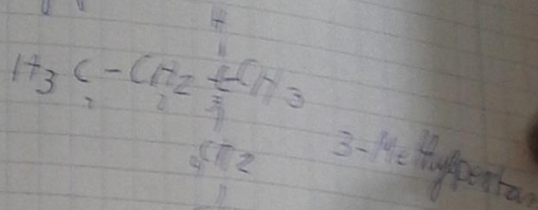 H
H3C-CH2-C-CH3
1 2 3
4 CH2
3-Methylpentan